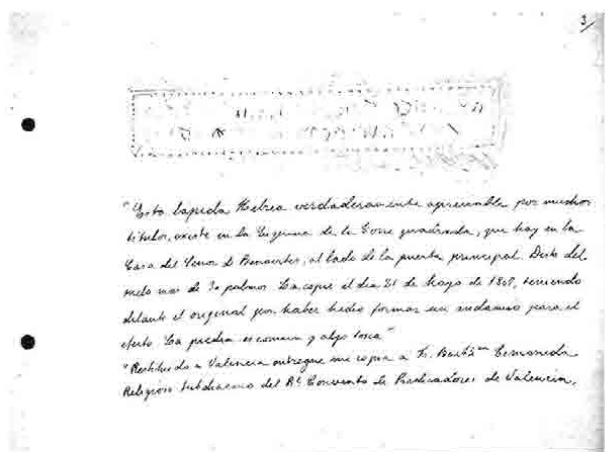 3
"Esta lapida Hebrea verdaderamente apreciable por muchos
titulos, existe en la Esquina de la Torre quadrada, que hay en la
Casa del Señor de Benavites, al lado de la puerta principal. Dista del
suelo mas de 30 palmos. La copie el dia 21 de Mayo de, teniendo
delante el original por haber hecho formar un andamio para el
efecto. La piedra es comun y algo tosca"
"Restituido a Valencia entregue una copia a Fr.
Religioso Subdiacono del Rl. Convento de Predicadores de Valencia,